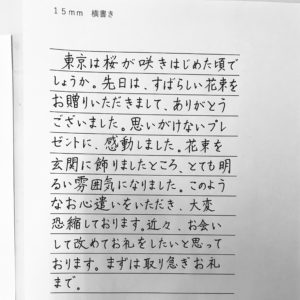 15mm 横書き
東京は桜が咲きはじめた頃で
しょうか。先日は、すばらしい花束を
お贈りいただきまして、ありがとう
ございました。思いがけないプレ
ゼントに、感動しました。花束を
玄関に飾りましたところ、とても明
るい雰囲気になりました。このよう
なお心遣いをいただき、大変
恐縮しております。近々、お会い
して改めてお礼をしたいと思って
おります。まずは取り急ぎお礼
まで。